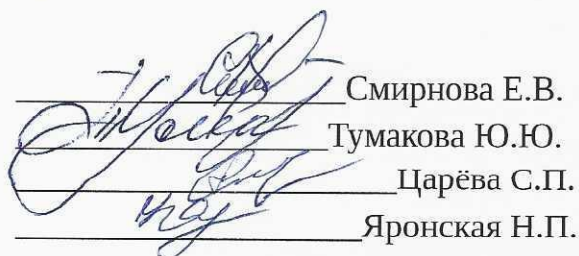 Смирнова Е.В.
Тумакова Ю.Ю.
Царёва С.П.
Яронская Н.П.